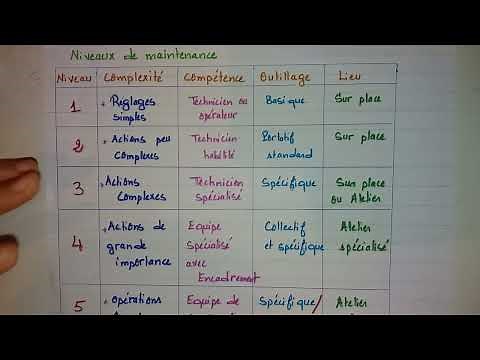 Niveaux de maintenance
Niveau Complexité Compétence Outillage Lieu
1 • Réglages simples Technicien ou opérateur Basique Sur place
2 • Actions peu complexes Technicien habilité Portatif standard Sur place
3 • Actions Complexes Technicien Spécialisé Spécifique Sur place ou Atelier
4 • Actions de grande importance Equipe Spécialisé avec Encadrement Collectif et spécifique Atelier spécialisé
5 • Opérations Equipe de Spécifique/ Atelier